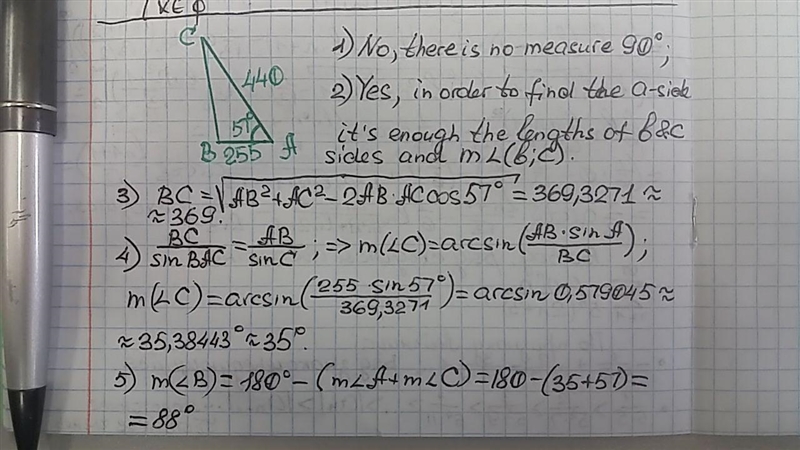 C
440
57°
B 255 A
1) No, there is no measure 90°;
2) Yes, in order to find the a-side
it's enough the lengths of b&c
sides and m∠(b;c).
3) BC = √(AB² + AC² - 2AB·AC cos 57°) = 369,3271 ≈
≈ 369.
4) BC/sin BAC = AB/sin C ; => m(∠C) = arcsin(AB·sin A/BC);
m(∠C) = arcsin(255·sin 57°/369,3271) = arcsin 0,579045 ≈
≈ 35,38443° ≈ 35°.
5) m(∠B) = 180° - (m∠A + m∠C) = 180 - (35+57) =
= 88°